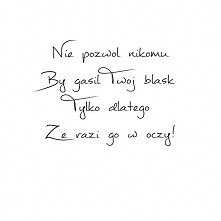 Nie pozwol nikomu
By gasil Twoj blask
Tylko dlatego
Ze razi go w oczy!